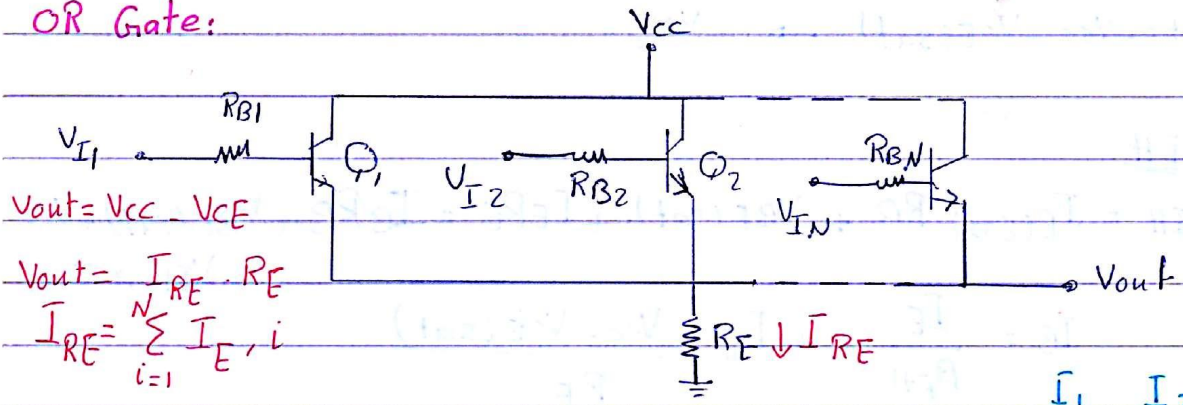 OR Gate:
Vcc
RB1
VI1
Q1
VI2
RB2
Q2
RBN
VIN
Vout = Vcc - VCE
Vout = IRE . RE
IRE = N Σ i=1 IE, i
Vout
RE ↓ IRE
I1